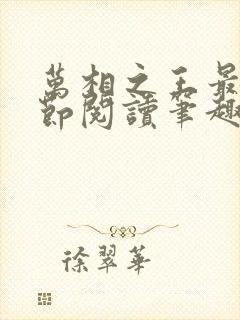 萬相之王最
節閱讀筆趣
徐翠華